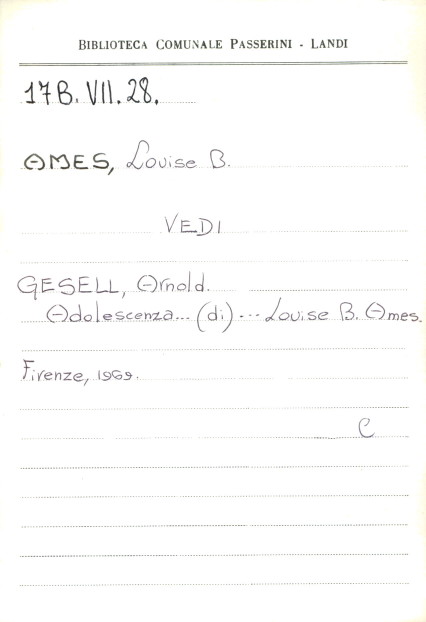 BIBLIOTECA COMUNALE PASSERINI - LANDI
17B. VII. 28.
AMES, Louise B.
VEDI
GESELL, Arnold.
Adolescenza... (di) ... Louise B. Ames.
Firenze, 1969.
C